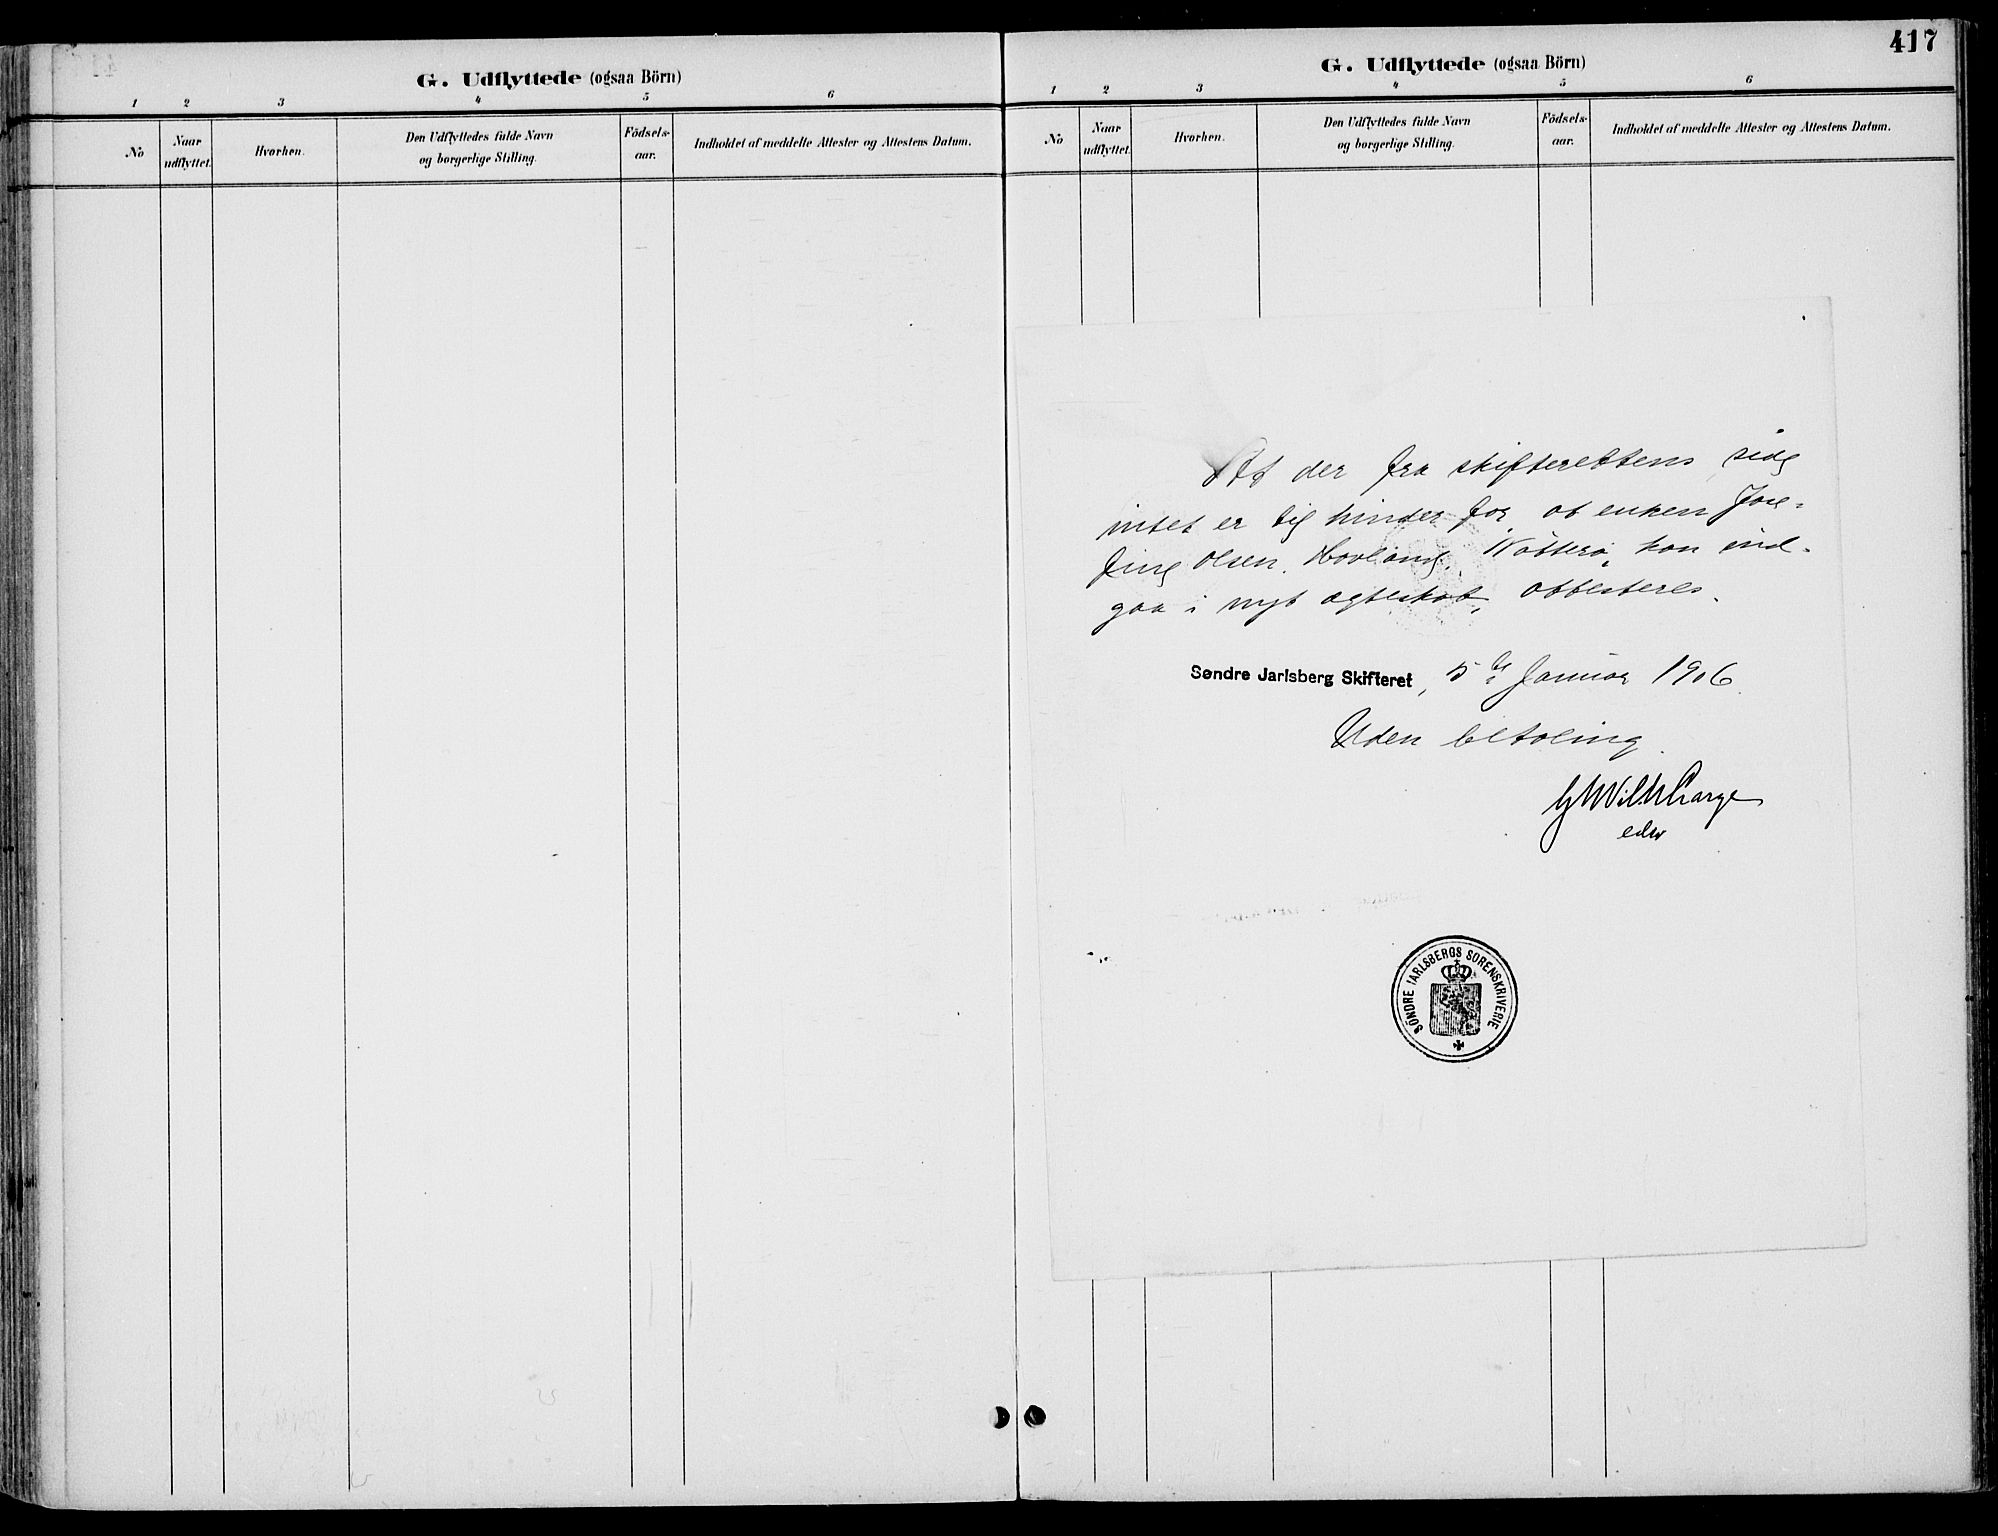 G. Udflyttede (ogsaa Börn)
1 2 3 4 5 6
No
Naar udflyttet.
Hvorhen.
Den Udflyttedes fulde Navn
og borgerlige Stilling.
Födsels-
aar.
Indholdet af meddelte Attester og Attestens Datum.
417
G. Udflyttede (ogsaa Börn)
1 2 3 4 5 6
No
Naar udflyttet.
Hvorhen.
Den Udflyttedes fulde Navn
og borgerlige Stilling.
Födsels-
aar.
Indholdet af meddelte Attester og Attestens Datum.
At der fra skifterettens side
intet er til hinder for, at enken Jose-
fine Olsen, Hovland, Nötterö, kan ind-
gaa i nyt ægteskab, attesteres.
Søndre Jarlsberg Skifteret, 5te Januar 1906.
Uden betaling.
edsv
SÖNDRE JARLSBERGS SORENSKRIVERIE